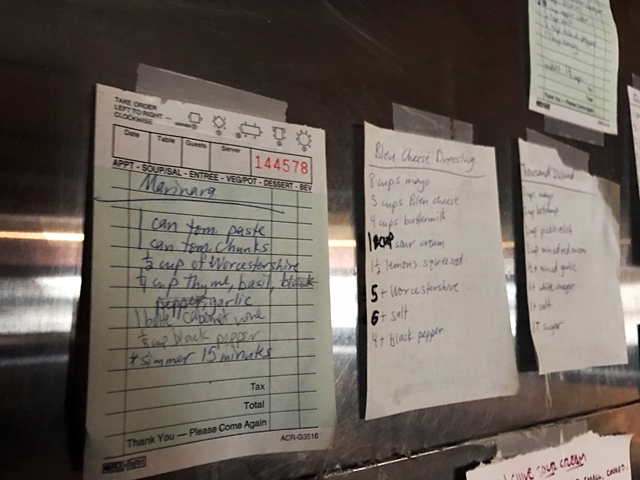 TAKE ORDER
LEFT TO RIGHT
CLOCKWISE
Date Table Guests Server 144578
APPT - SOUP/SAL - ENTREE - VEG/POT - DESSERT - BEV
Marinara
1 can tom. paste
1 can Tom. Chunks
1/2 cup of Worcestershire
1/4 cup Thyme, basil, black
pepper, garlic
1 bottle cabernet wine
black pepper
* simmer 15 minutes
Tax
Total
Thank You — Please Come Again
ACR-G3516
Bleu Cheese Dressing
8 cups mayo
5 cups Bleu cheese
4 cups buttermilk
1 cup sour cream
1 1/2 lemons squeezed
5 t Worcestershire
6 t salt
4 t black pepper
Thousand Island
cups mayo
cup ketchup
cup
cup minced onion
minced garlic
1t white vinegar
1t salt
1T sugar
Thank You — Please Come Again
sour cream